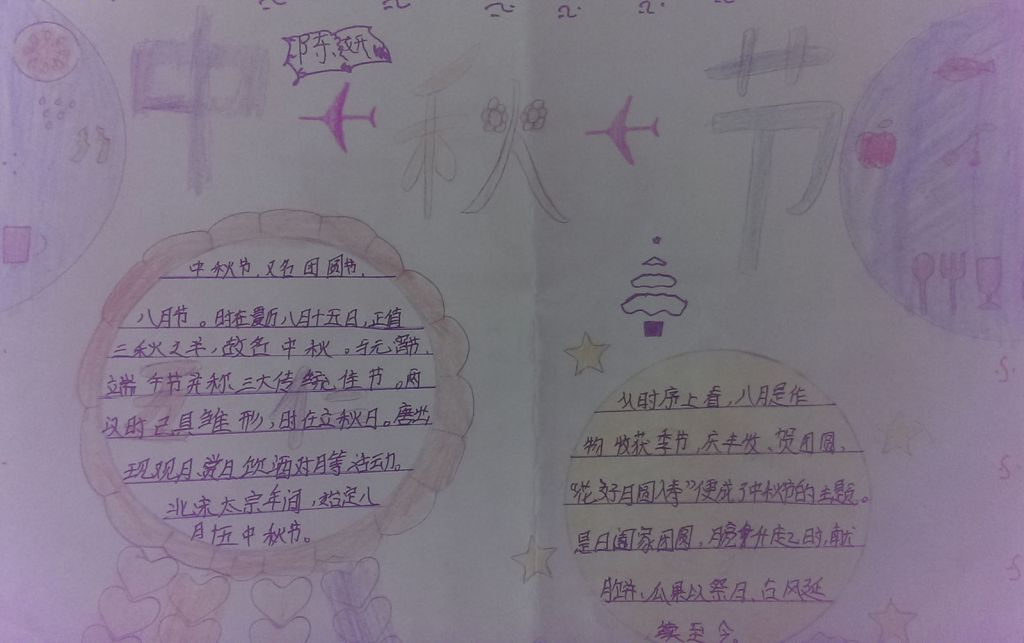 中秋节
陈越
中秋节,又名团圆节,
八月节。时在夏历八月十五日,正值
三秋之半,故名中秋。与元宵节、
端午节并称三大传统佳节。两
汉时已具雏形,时在立秋日。唐出
现观月、赏月、饮酒对月等活动。
北宋太宗年间,始定八
月十五中秋节。
从时序上看,八月是作
物收获季节,庆丰收、贺团圆、
“花好月圆人寿”便成了中秋节的主题。
是日阖家团圆,月亮升起之时,献
月饼、瓜果以祭月、古风延
续至今。